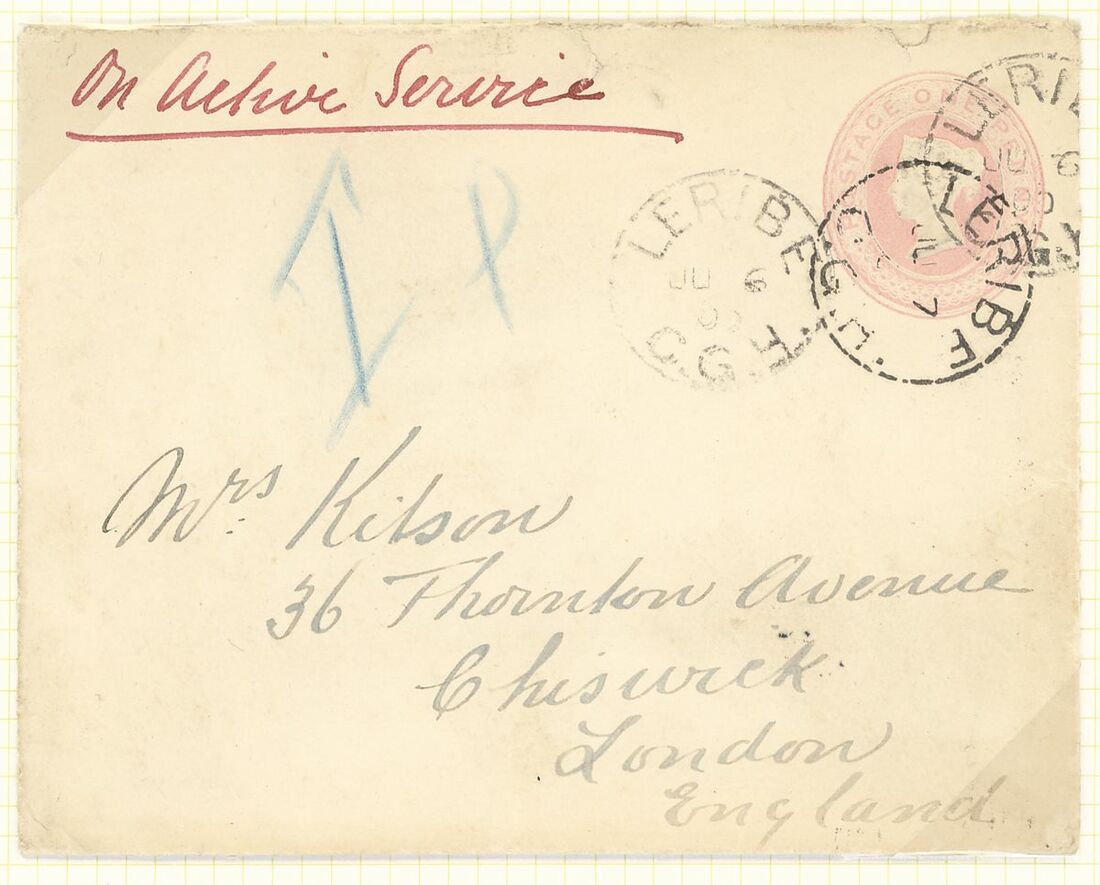 On Active Service
POSTAGE ONE PE
LERIBE
JU 6
00
C.G.H.
LERIBE
JU 6
LERIBE
7
Mrs. Kitson
36 Thornton Avenue
Chiswick
London
England